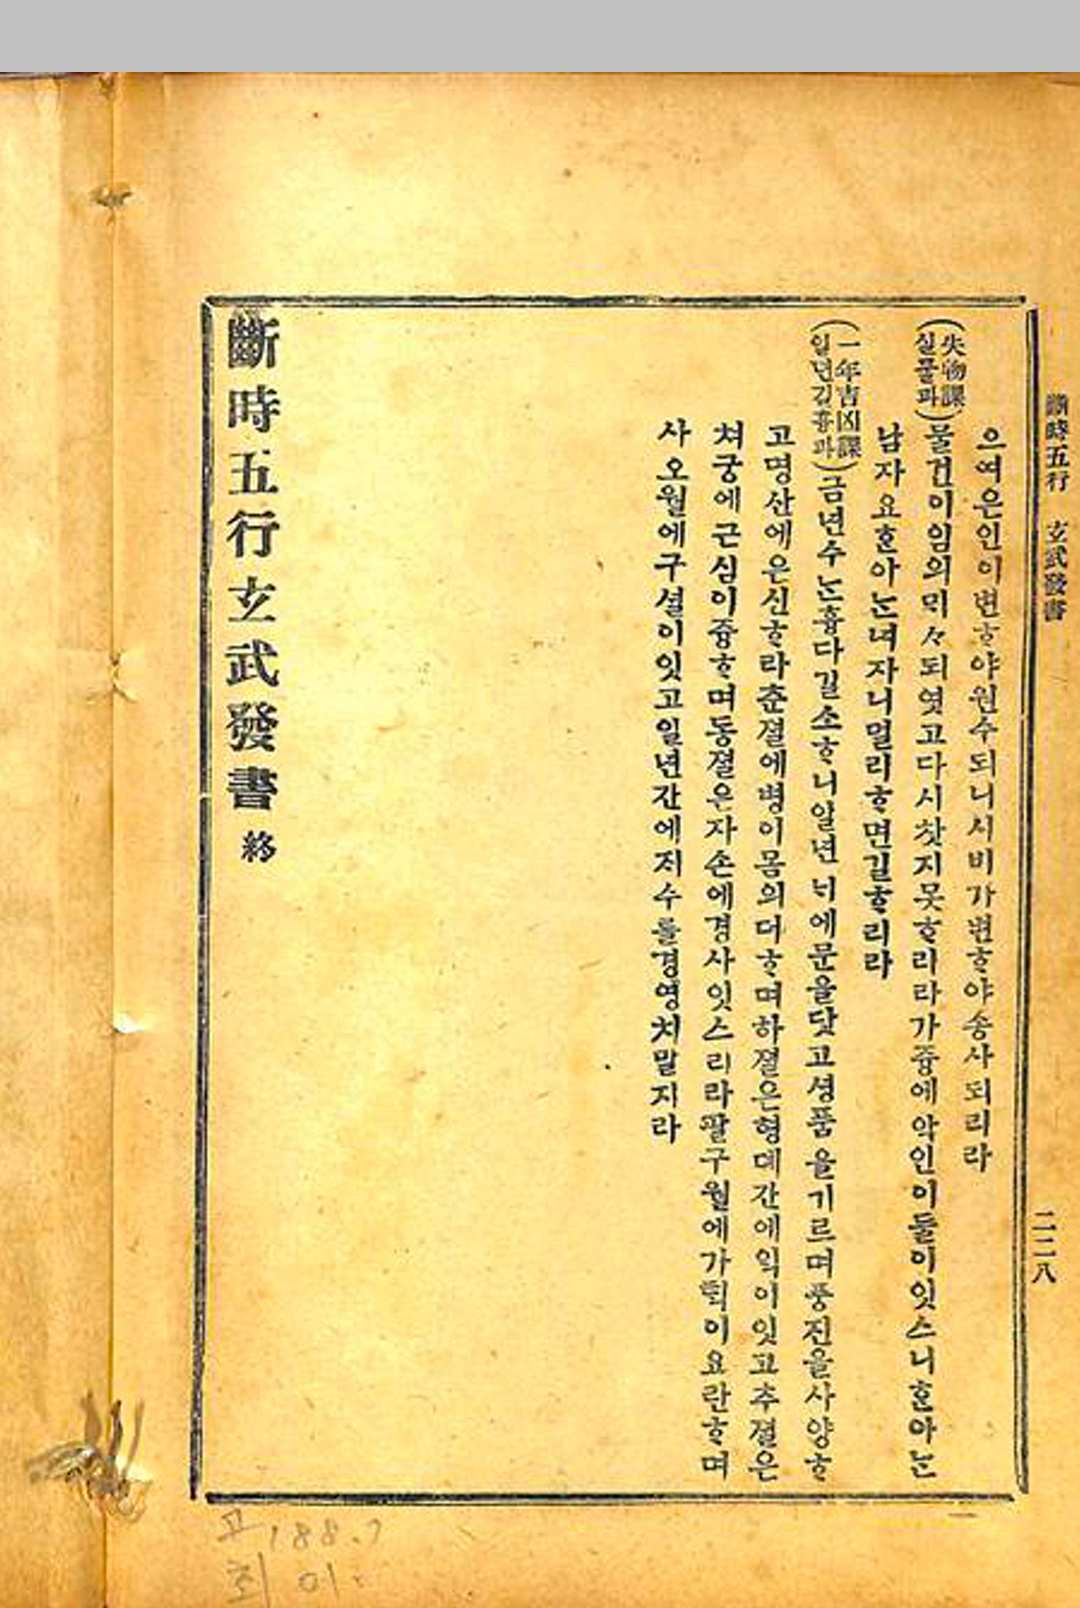 斷時五行 玄武發書
二二八
으여은인이변ᄒᆞ야원수되니시비가변ᄒᆞ야송사되리라
(失物課 실물과)물건이임의ᄆᆡ々되엿고다시찻지못ᄒᆞ리라가즁에악인이둘이잇스니ᄒᆞᆫ아ᄂᆞᆫ
남자요ᄒᆞᆫ아ᄂᆞᆫ녀자니멀리ᄒᆞ면길ᄒᆞ리라
(一年吉凶課 일년길흉과)금년수ᄂᆞᆫ흉다길소ᄒᆞ니일년ᄂᆡ에문을닷고셩품을기르며풍진을사양ᄒᆞ
고명산에은신ᄒᆞ라춘졀에병이몸의더ᄒᆞ며하졀은형뎨간에익이잇고추졀은
쳐궁에근심이즁ᄒᆞ며동졀은자손에경사잇스리라팔구월에가ᄐᆡᆨ이요란ᄒᆞ며
사오월에구셜이잇고일년간에저수를경영치말지라
斷時五行玄武發書 終
고 188.7
최 01